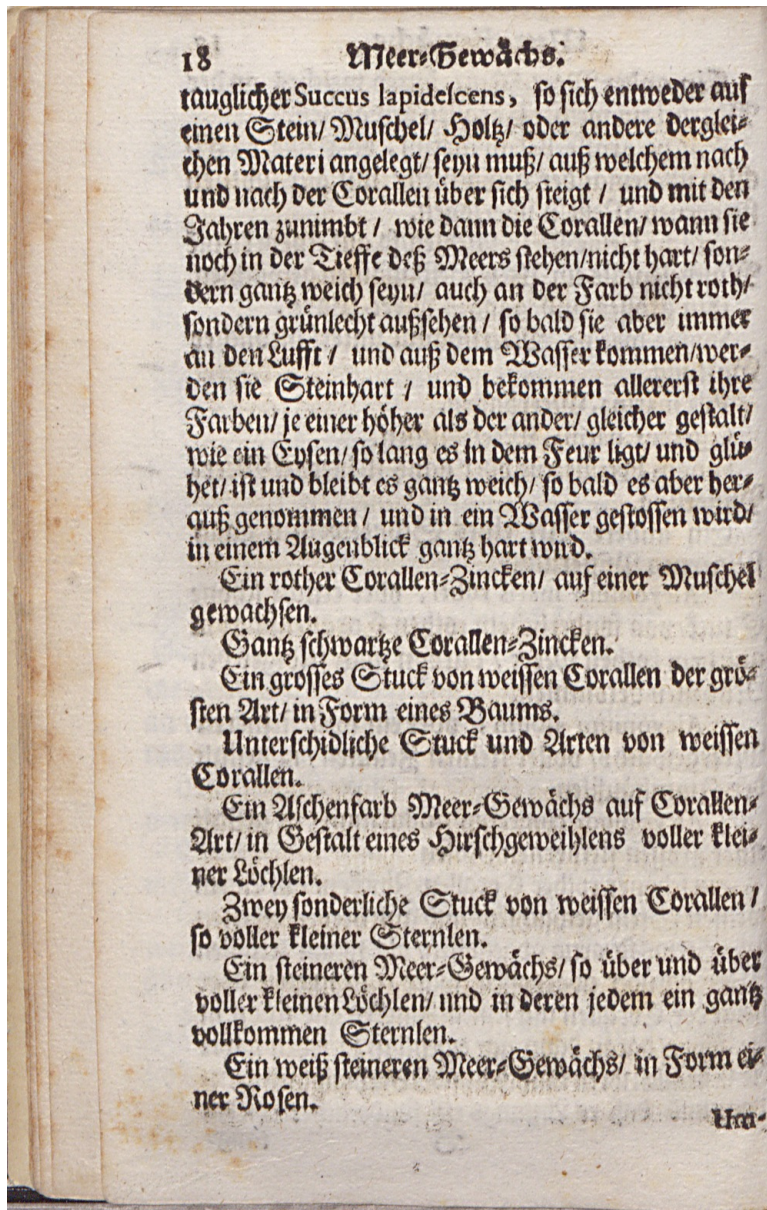 18 Meer-Gewächs.
tauglicher Succus lapidescens, so sich entweder auf
einen Stein/ Muschel/ Holtz/ oder andere derglei-
chen Materi angelegt/ seyn muß/ auß welchem nach
und nach der Corallen über sich steigt / und mit den
Jahren zunimbt / wie dann die Corallen/ wann sie
noch in der Tieffe deß Meers stehen/nicht hart/ son-
dern gantz weich seyn/ auch an der Farb nicht roth/
sondern grünlecht außsehen / so bald sie aber immer
an den Lufft / und auß dem Wasser kommen/wer-
den sie Steinhart / und bekommen allererst ihre
Farben/ je einer höher als der ander/ gleicher gestalt/
wie ein Eysen/ so lang es in dem Feur ligt/ und glü-
het/ ist und bleibt es gantz weich/ so bald es aber her-
auß genommen / und in ein Wasser gestossen wird/
in einem Augenblick gantz hart wird.
Ein rother Corallen-Zincken/ auf einer Muschel
gewachsen.
Gantz schwartze Corallen-Zincken.
Ein grosses Stuck von weissen Corallen der grö-
sten Art/ in Form eines Baums.
Unterschidliche Stuck und Arten von weissen
Corallen.
Ein Aschenfarb Meer-Gewächs auf Corallen-
Art/ in Gestalt eines Hirschgeweihlens voller klei-
ner Löchlen.
Zwey sonderliche Stuck von weissen Corallen /
so voller kleiner Sternlen.
Ein steineren Meer-Gewächs/ so über und über
voller kleinen Löchlen/ und in deren jedem ein gantz
vollkommen Sternlen.
Ein weiß steineren Meer-Gewächs/ in Form ei-
ner Rosen.